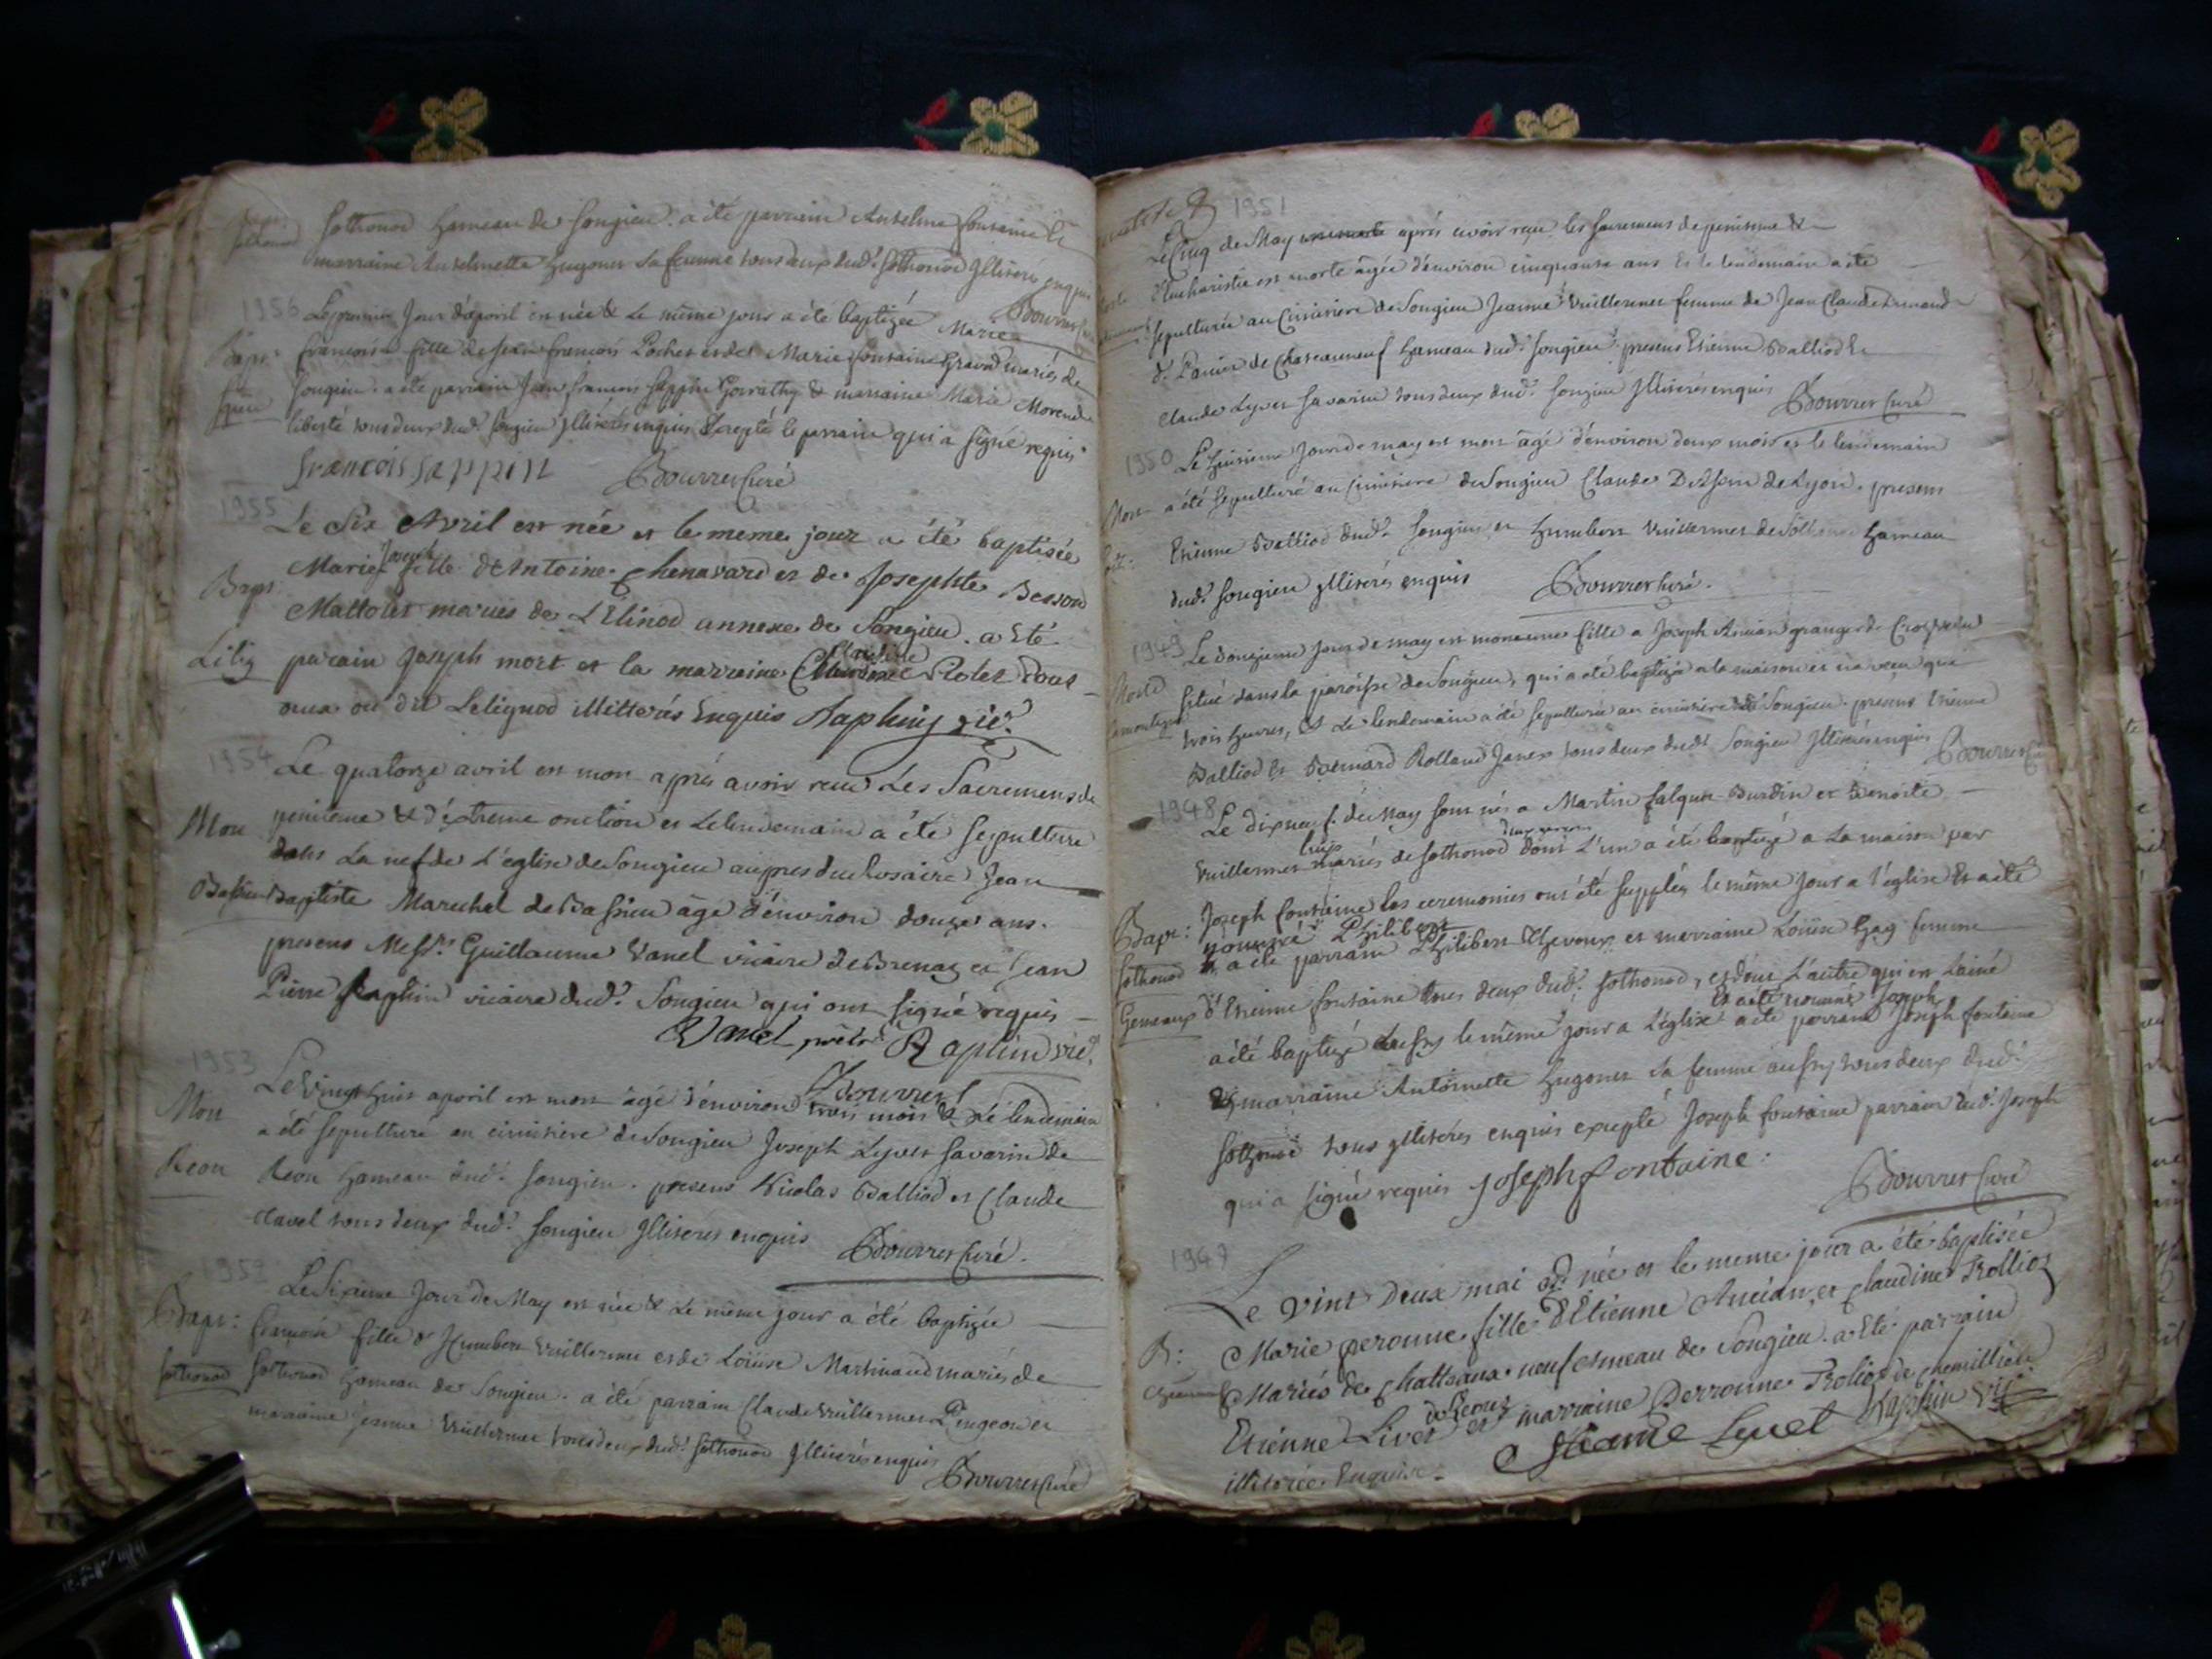 Sothonod hameau de Songieu. a été parrain Anselme fontaine Et
marraine Anselmette hugonet Sa femme tous deux dud. Sothonod Illiterés enquis
Bourret Curé
1956
Le premier Jour d'apvril est née & Le même jour a été baptizée Marie
Bapt: françoise fille de Jean françois Pochet et de Marie fontaine Gravd mariés de
Songieu. a été parrain Jean françois Sappin & marraine Marie
liberté tous deux dud. Songieu Illiterés enquis Excepté le parrain qui a signé requis
francois sappin Bourret Curé
1955
Le Six Avril est née et le meme jour a été baptisée
Joseph
Marie fille de Antoine Chenavard et de Josephte Besson
Bapt
Mattolet mariés de L'Elinod annexe de Songieu. a Eté
Claudine
Lilig parain Joseph mort et la marraine Claudine Protet Tous
deux du dit Lelignod illitterés Enquis Raphin vic.
1954
Le quatorze avril est mort après avoir recu Les Sacremens de
Mort penitence & d'éxtreme onction et Le lendemain a été sepulture
dans La nef de L'eglise de Songieu aupres du Rosaire Jean
Bassieu Baptiste Marechal de Bassieu âgé d'environ douze ans.
presens Messrs Guillaume Vanel vicaire de Brenaz et Jean
Pierre Raphin vicaire dud. Songieu qui ont signé requis
Vanel prêtre Raphin vic.
Bourret
1953
Le Vingt huit apvril est mort agé d'environ trois mois & Le lendemain
Mort a été sepulturé au cimitiere de Songieu Joseph Lyvet Savarin de
Reou Reou hameau dud. Songieu. presens Nicolas Balliod et Claude
Clavel tous deux dud. Songieu Illiterés enquis Bourret Curé.
Le Sixieme Jour de May est née & Le même jour a été baptizée
Bapt: françoise fille d'Humbert Vuillermet et de Loüise Martinaud mariés de
Sothonod Sothonod hameau de Songieu. a été parrain Claude Vuillermet Pingeon et
marraine Jeanne Vuillermet tous deux dud. Sothonod Illiterés enquis
Bourret Curé
1951
Le Cinq de May après avoir reçu les sacremens de penitence &
Eucharistie est morte âgée d'environ cinquante ans Et le lendemain a été
sepulturée au Cimitiere de Songieu Jeanne Vuillermet femme de Jean Claude
de Chateauneuf hameau dud. Songieu. presens Etienne Balliod Et
Claude Lyvet Savarin tous deux dud. Songieu Illiterés enquis Bourret Curé
1950
Le huitieme Jour de may est mort âgé d'environ deux mois et le lendemain
Mort a été sepulturé au Cimitiere de Songieu Claude de Lyon. presens
Etienne Balliod dud. Songieu et Humbert Vuillermet de Sothonod hameau
dud. Songieu illiterés enquis Bourret Curé.
1949
Le douzieme Jour de may est morte une fille a Joseph Ancian granger de
Morte situé dans la paroisse de Songieu, qui a été baptizée a la maison et n'a vecu que
trois heures, Et Le lendemain a été sepulturée au cimitiere de Songieu. presens Etienne
Balliod Et Bernard Rolland Janet tous deux dud. Songieu Illiterés enquis Bourret Curé
1948
Le dixneuf de May sont nés a Martin falquet Burdin et Benoite
Vuillermet mariés de Sothonod dont L'un a été baptizé a La maison par
Bapt: Joseph fontaine les ceremonies ont été supplées le même jour a l'église Et a été
nommé Philibert
Sothonod a été parrain Philibert Thevoux et marraine Loüise hag femme
Gemeaux d'Etienne fontaine tous deux dud. Sothonod, et dont L'autre qui est L'ainé
Et a été nommé Joseph
a été baptizé aussy le même jour a L'église a été parrain Joseph fontaine
Et marraine Antoinette hugonet Sa femme aussy tous deux dud.
Sothonod tous illiterés enquis excepté Joseph fontaine parrain dud. Joseph
qui a signé requis Joseph fontaine.
Bourret Curé
1947
Le vint Deux mai est née et le meme jour a été baptisée
B: Marie peronne fille d'Etienne Ancian et claudine Trollioz
Mariés de Chatteaux neuf hameau de Songieu. a Eté parrain
Etienne Livet et marraine Perronne Troliet de chemillieu
illiterée Enquise. Etienne Lyvet Raphin vic